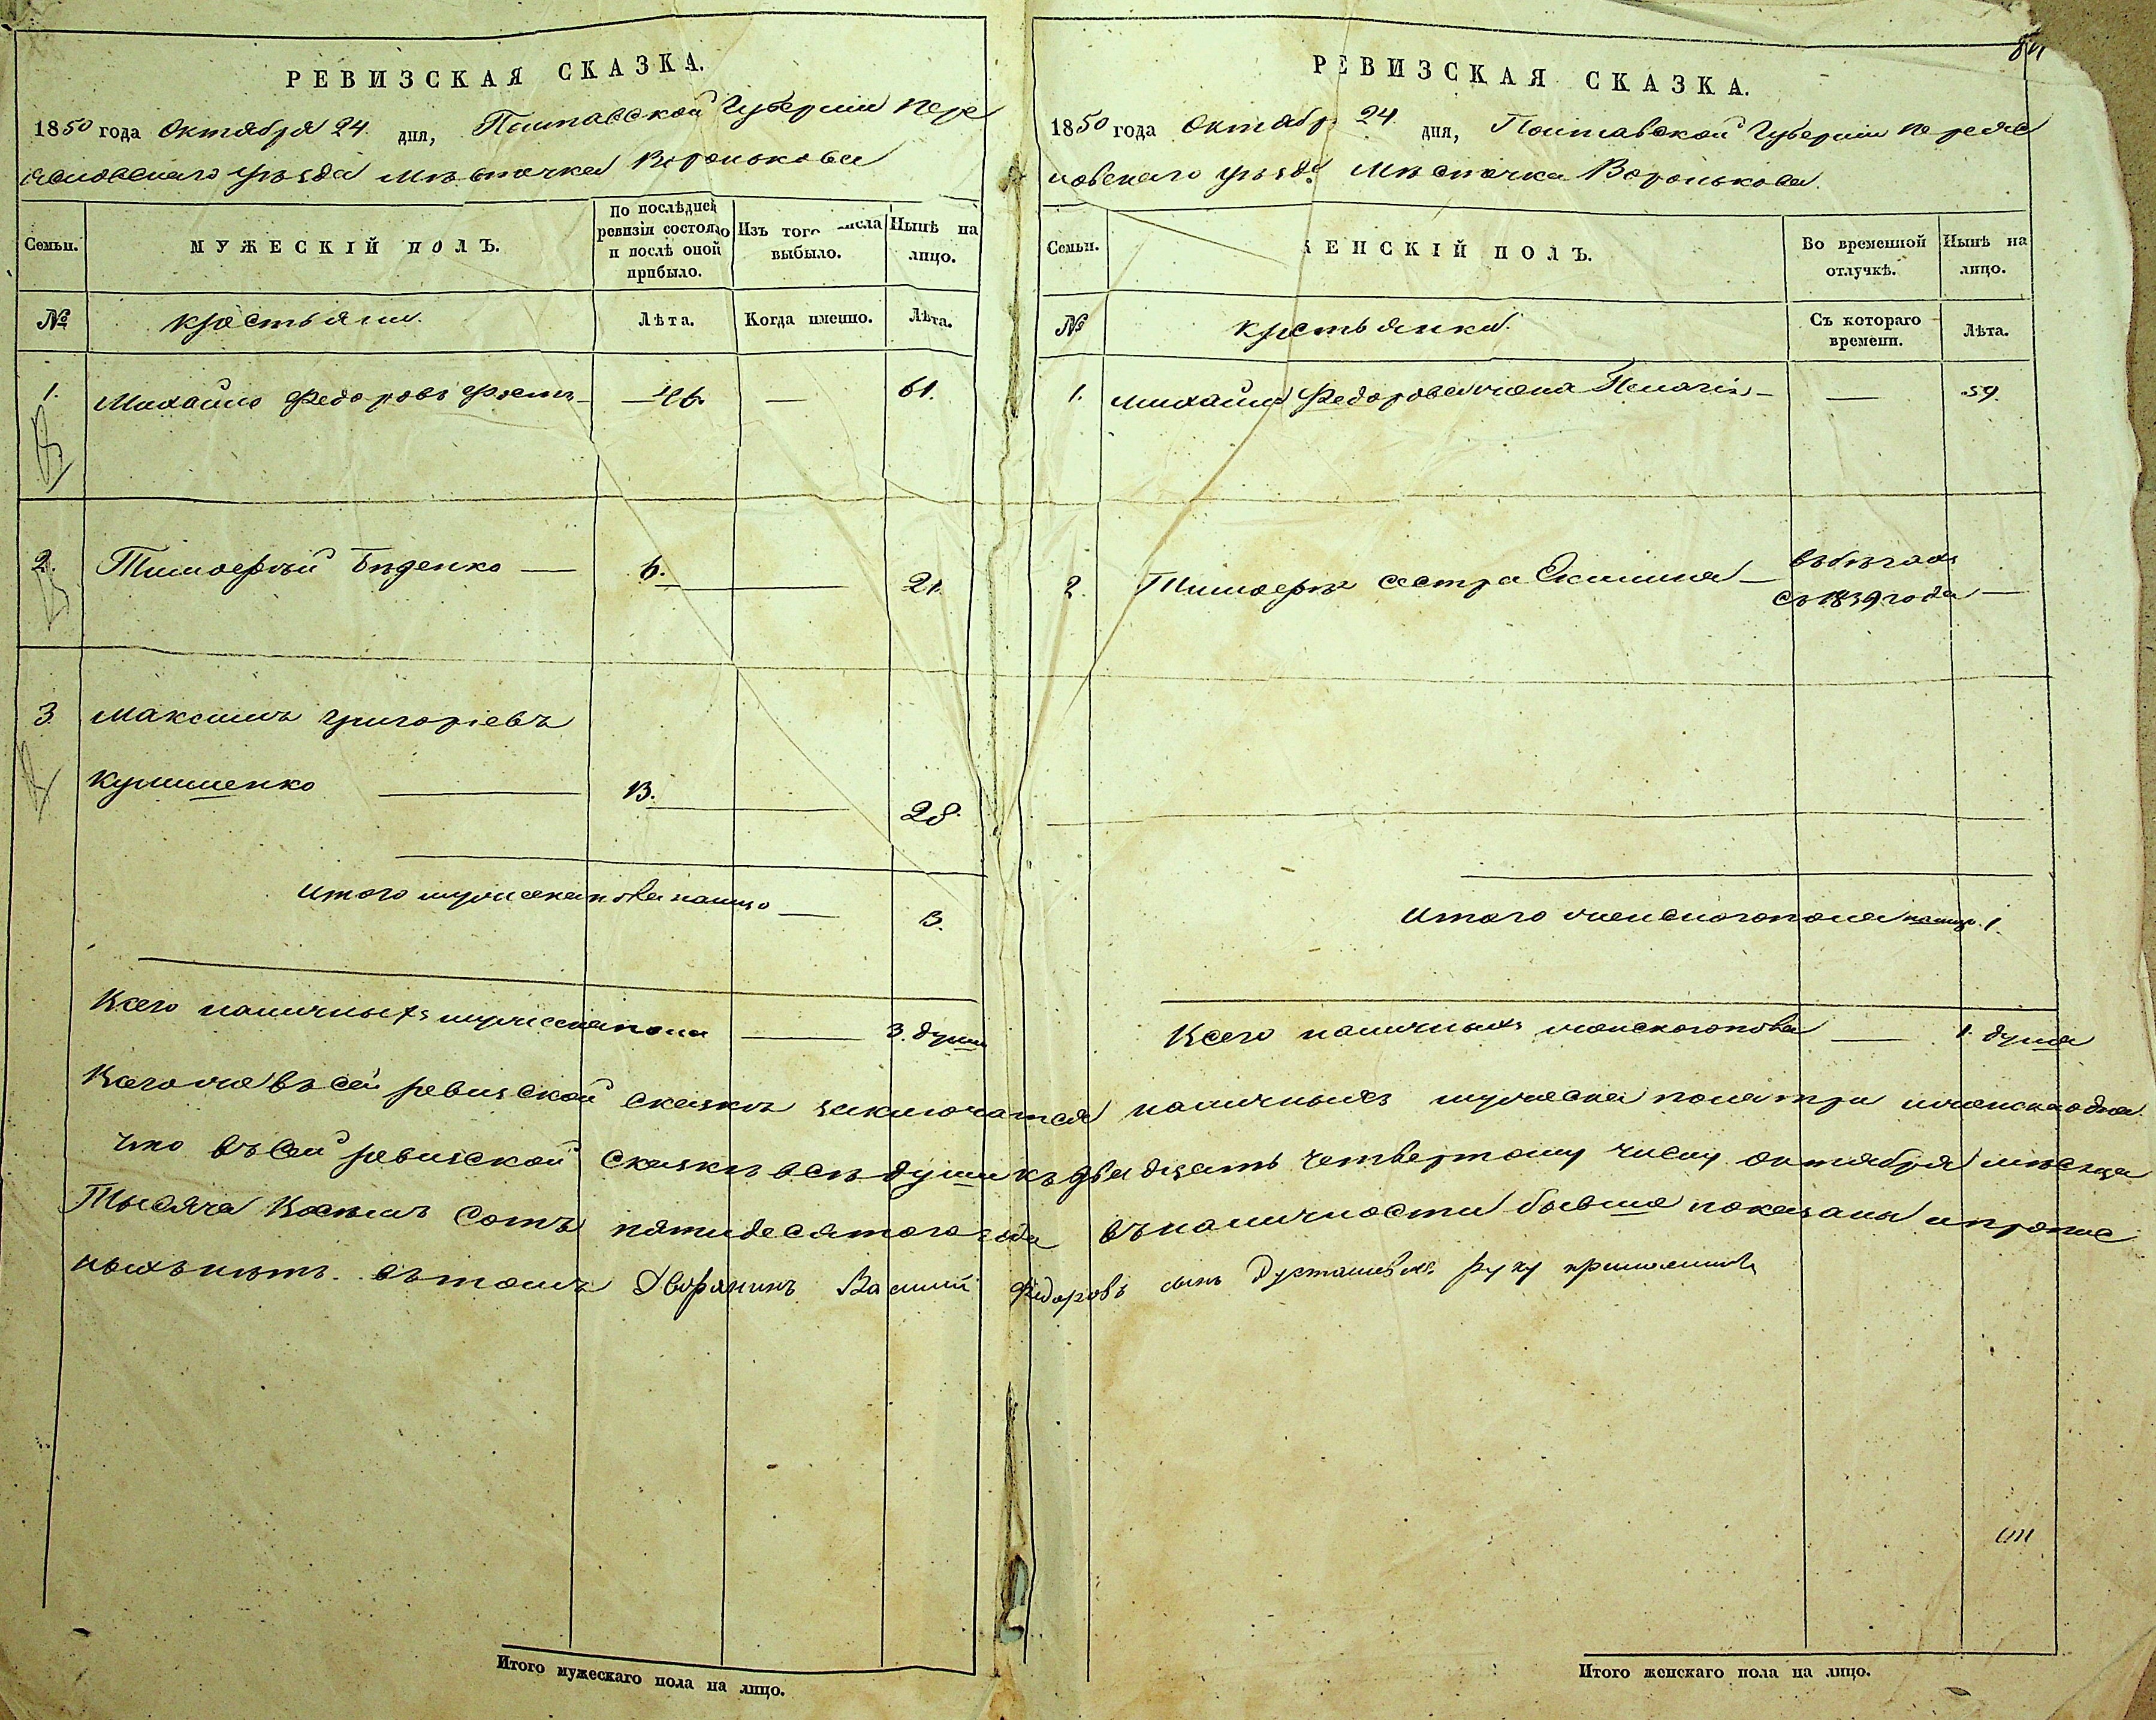 РЕВИЗСКАЯ СКАЗКА.
1850 года Октября 24. дня, Полтавской Губерніи Пере
яславскаго уѣзда Мѣстечка Воронькова
Семьи. МУЖЕСКІЙ ПОЛЪ. По послѣдней ревизіи состояло и послѣ оной прибыло. Изъ того числа выбыло. Нынѣ на лицо.
№ крестьяни. Лѣта. Когда именно. Лѣта.
1. Михайло Федоровъ — 46. — 61.
2. Тимофѣй Бѣденко — 6. — 21.
3 Максимъ Григоріевъ
Кулишенко — 13. — 28.
Итого мужеска пола налицо — 3.
Всего наличныхъ мужеска пола — 3. души
РЕВИЗСКАЯ СКАЗКА.
84
1850 года Октябр 24 дня, Полтавской Губерніи Переяс
ловскаго уѣзда Мѣстечка Воронькова.
Семьи. ЖЕНСКІЙ ПОЛЪ. Во временной отлучкѣ. Нынѣ на лицо.
№ крестьянки. Съ котораго времени. Лѣта.
1. Михайла Федорова жена Пелагія — — 59.
2. Тимофѣя сестра Екилина — въ бѣгахъ
съ 1839 года —
Итого женскаго пола налицо. 1.
Всего наличныхъ женскаго пола — 1. душа
Всего же въ сей ревизской сказкѣ заключается наличныхъ мужеска пола три и женска одна.
что въ сей ревизской сказкѣ всѣ души къ двадцать четвертому числу октября мѣсяца
Тысяча Восемь Сотъ пятидесятого года въ наличности бывше показаны и пропис
ныхъ нѣтъ. въ томъ Дворянинъ Василий Федоровъ сынъ руку приложилъ
Итого мужескаго пола на лицо.
Итого женскаго пола на лицо.